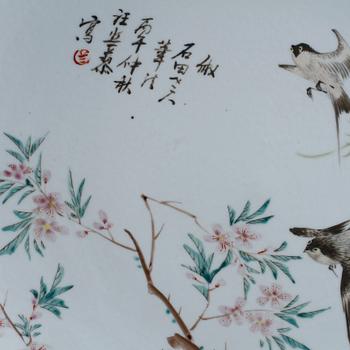 倣
石田老人
筆法
丙午仲秋
汪照黎
寫